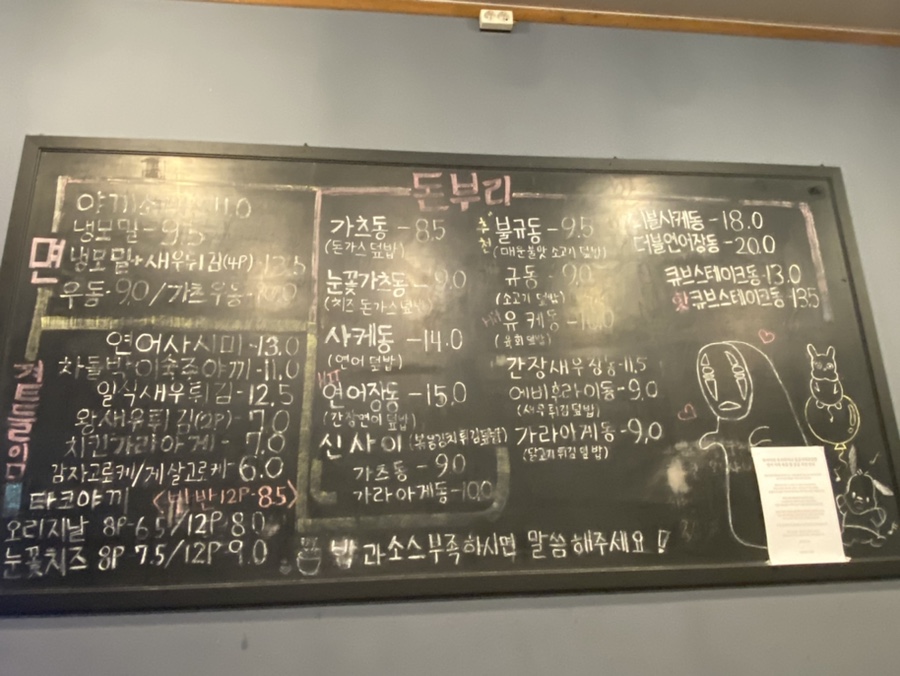 돈부리
면
냉모밀 - 9.5
냉모밀+새우튀김(4P)
우동-9.0/가츠우동
연어사시미-13.0
차돌박이숙주야끼-11.0
일식새우튀김-12.5
왕새우튀김(2P)- 7.0
치킨가라아게- 7.0
감자고로케/게살고로케- 6.0
타코야끼 <반반12P-8.5>
오리지날 8P-6.5/12P-8.0
눈꽃치즈 8P 7.5/12P-9.0
가츠동 - 8.5
(돈가스덮밥)
눈꽃가츠동 - 9.0
(치즈 돈가스덮밥)
사케동 -14.0
(연어 덮밥)
연어장동 -15.0
(간장연어 덮밥)
신 사이
가츠동 - 9.0
가라아게동-10.0
추천 불규동 - 9.5
(매운불맛 소고기 덮밥)
규동 - 9.0
(소고기 덮밥)
유케동
(육회덮밥)
간장새우장동-11.5
에비후라이동-9.0
(새우튀김덮밥)
가라아게동-9.0
(닭고기튀김덮밥)
더블사케동 -18.0
더블연어장동 -20.0
큐브스테이크동-13.0
큐브스테이크동-13.5
밥과소스부족하시면 말씀해주세요!